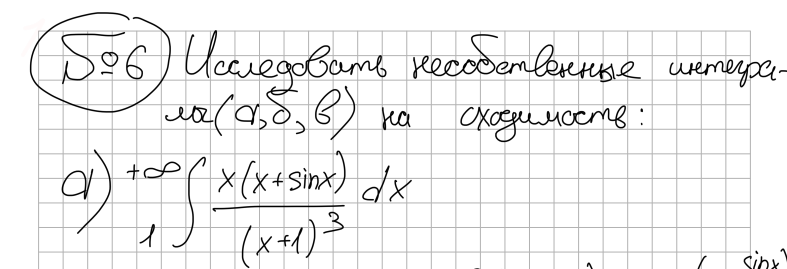 №6 Исследовать несобственные интегра-
ла(а,б,в) на сходимость:
а) +∞ ∫ 1 x(x+sinx) / (x+1)^3 dx
sinx